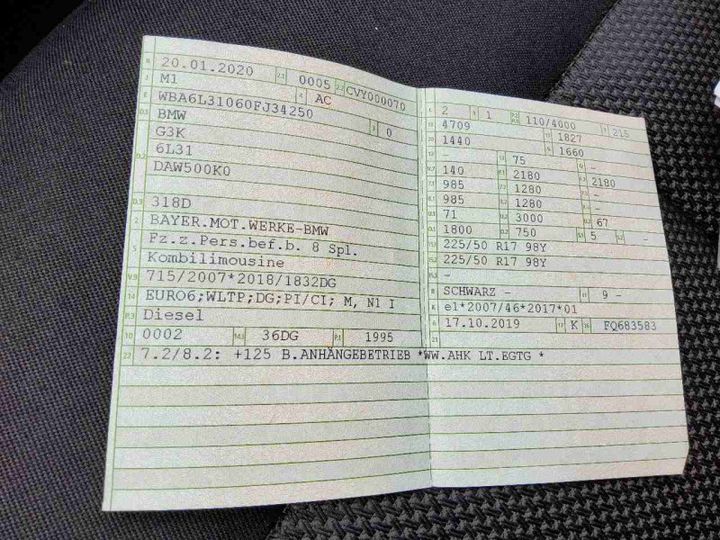 20.01.2020 0005 CVY000070
M1 AC
WBA6L31060FJ34250
BMW 0
G3K
6L31
DAW500K0
318D
BAYER.MOT.WERKE-BMW
Fz.z.Pers.bef.b. 8 Spl.
Kombilimousine
715/2007*2018/1832DG
EURO6;WLTP;DG;PI/CI; M, N1 I
Diesel
0002 36DG 1995
7.2/8.2: +125 B.ANHÄNGEBETRIEB *WW.AHK LT.EGTG *
2 1 110/4000 215
4709 1827
1440 1660
- 75 -
140 2180 2180
985 1280 -
985 1280 -
71 3000 67
1800 750 5 -
225/50 R17 98Y
225/50 R17 98Y
-
SCHWARZ - 9 -
e1*2007/46*2017*01
17.10.2019 K FQ683583